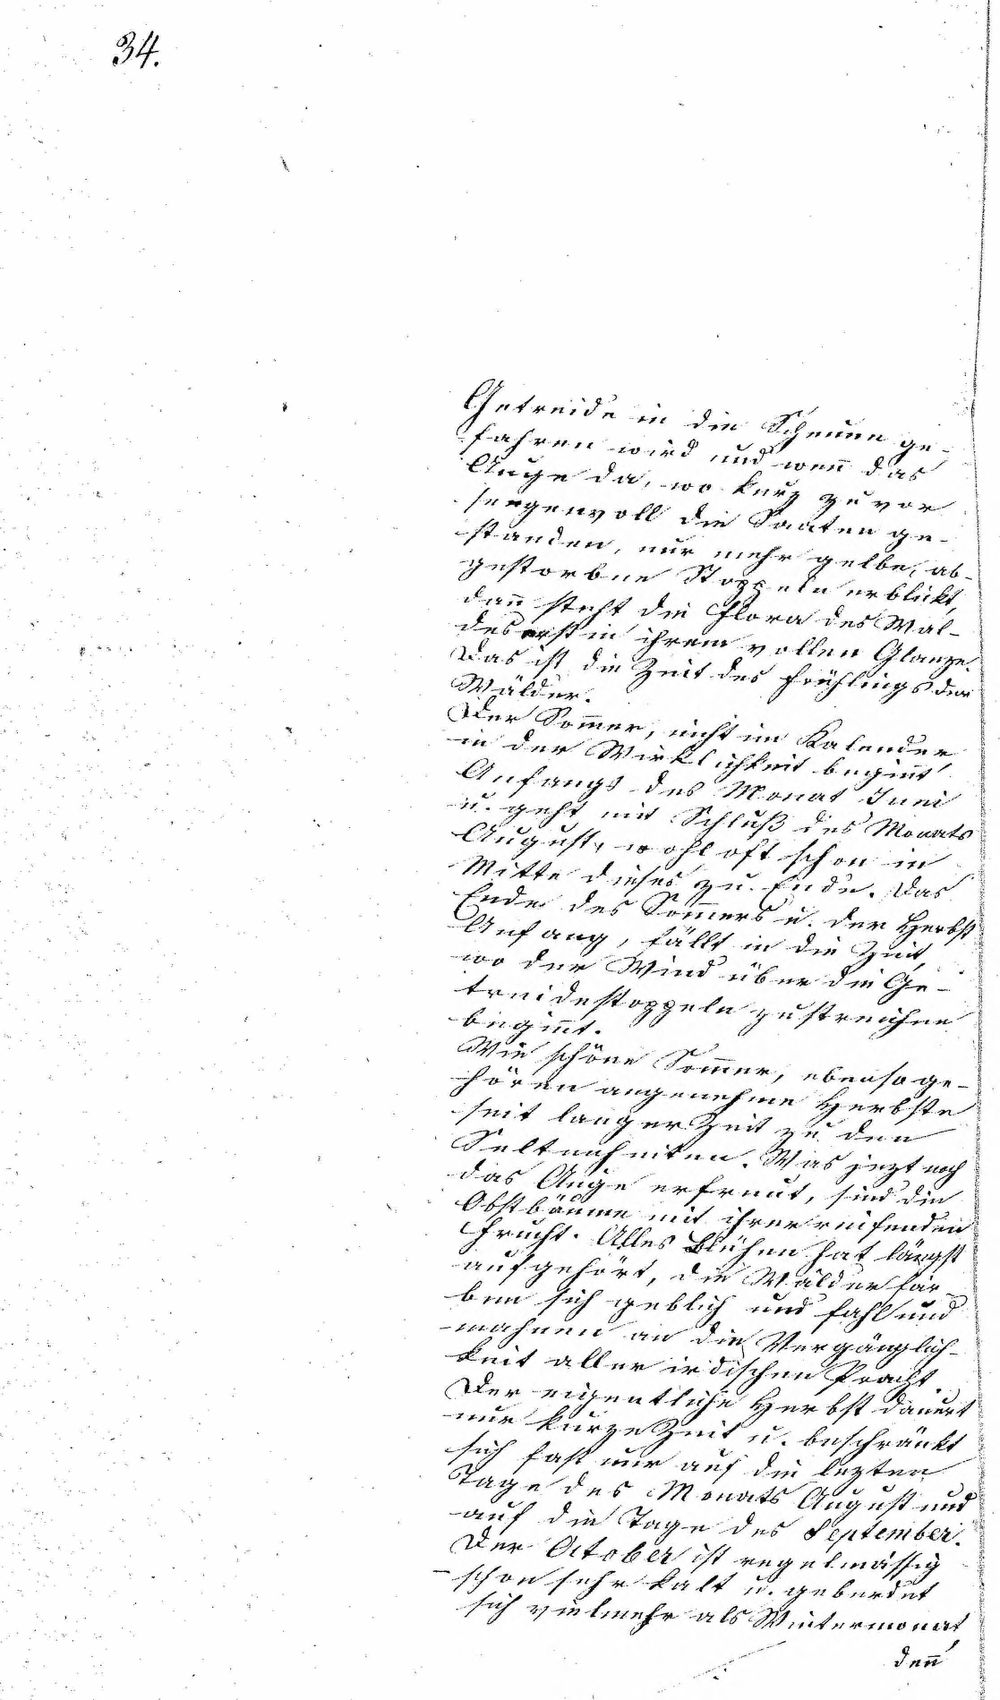 34.
Getreide in die Scheunen ge-
fahren wird und wen̄ das
Auge da, wo kurz zuvor
segenvoll die Saaten ge-
standen, nur mehr gelbe, ab-
gestorbne Stoppeln erblickt,
dan̄ steht die Flora des Wal-
des erst in ihrem vollen Glanze.
Das ist die Zeit des Frühlings der
Wälder.
Der Som̄er, nicht im Kalender
in der Wirklichkeit begin̄t
Anfangs des Monat Juni
u. geht mit Schluß des Monats
August, wohl oft schon in
Mitte dieses zu Ende. Das
Ende des Som̄ers u. der Herbst
Anfang, fällt in die Zeit,
wo der Wind über die Ge-
treidestoppeln zu streichen
begin̄t.
Wie schöne Som̄er, ebenso ge-
hören angenehme Herbste
seit langer Zeit zu den
Seltenheiten. Was jezt noch
das Auge erfreut, sind die
Obstbäume mit ihrer reifenden
Frucht. Alles Blühen hat längst
aufgehört, die Wälder fär-
ben sich geblich und fahl und
mahnen an die Vergänglich-
keit aller irdischen Pracht.
Der eigentliche Herbst dauert
nur kurze Zeit u. beschränkt
sich fast nur auf die lezten
Tage des Monats August und
auf die Tage des September.
Der October ist regelmässig
schon sehr kalt u. geberdet
sich vielmehr als Wintermonat,
den̄